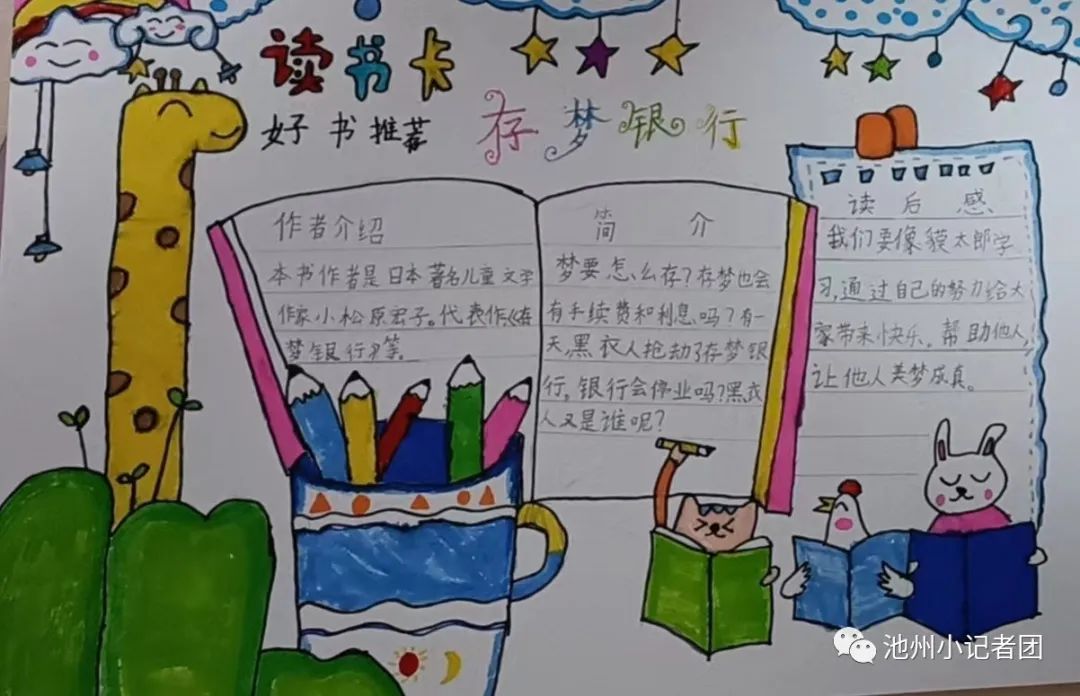 读书卡
好书推荐
存梦银行
作者介绍
本书作者是日本著名儿童文学
作家小松原宏子。代表作《存
梦银行》等。
简介
梦要怎么存?存梦也会
有手续费和利息吗?有一
天,黑衣人抢劫了存梦银
行,银行会停业吗?黑衣
人又是谁呢?
读后感
我们要像貘太郎学
习,通过自己的努力给大
家带来快乐。帮助他人,
让他人美梦成真。
池州小记者团